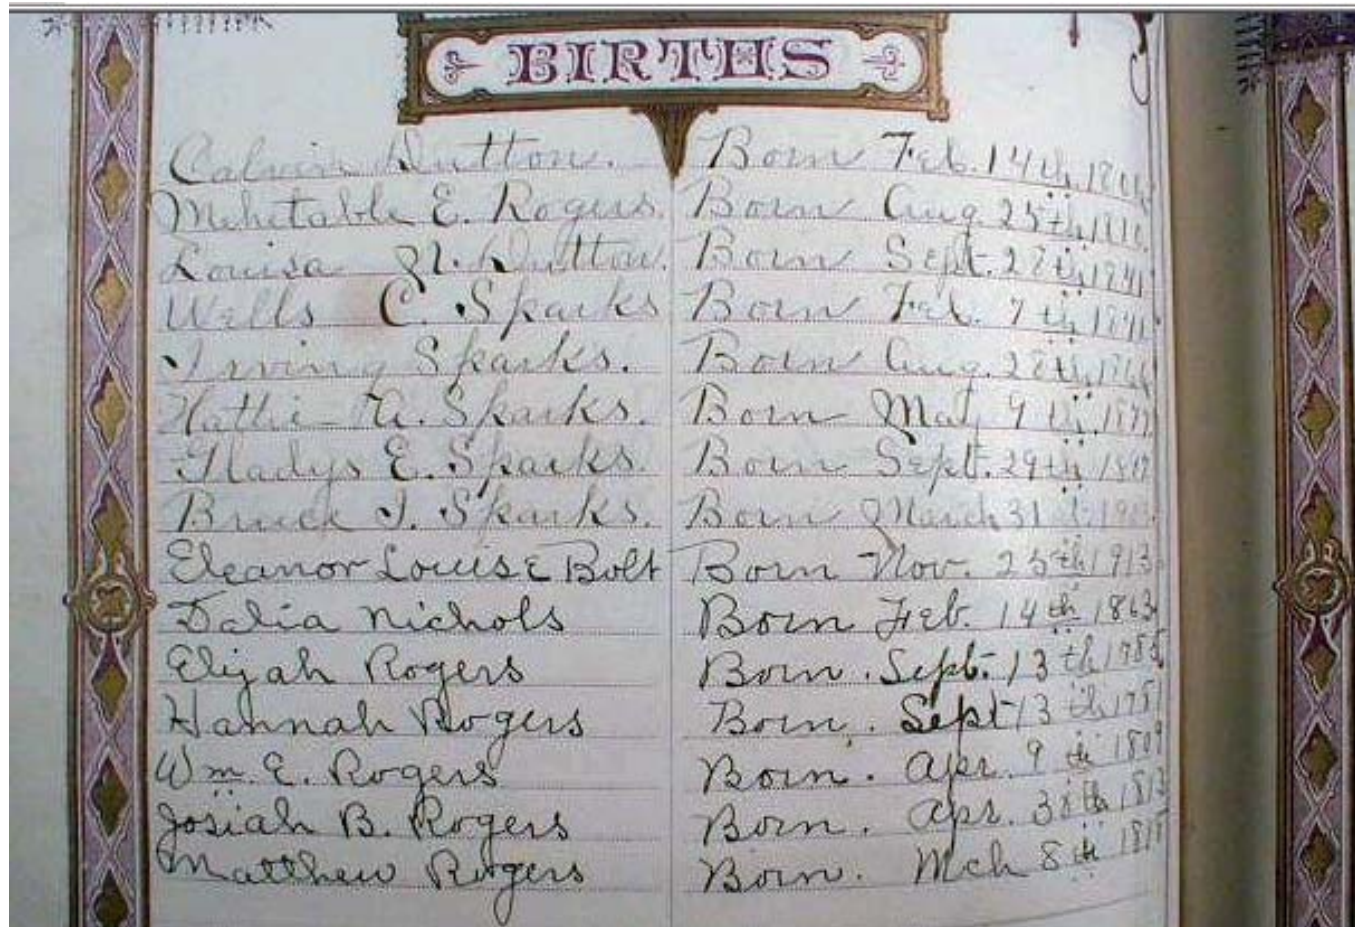 BIRTHS
Calvin Dutton. Born Feb. 14th
Mehetable E. Rogers. Born Aug. 25th, 1810.
Louisa N. Dutton. Born Sept. 28th, 1841
Wells C. Sparks Born Feb. 7th, 1841.
Irving Sparks. Born Aug. 28th,
Hattie A. Sparks. Born May 9th,
Gladys E. Sparks. Born Sept. 29th
Bruce I. Sparks. Born March 31
Eleanor Louise Bolt Born Nov. 25th 1913
Dalia Nichols Born Feb. 14th 1863
Elijah Rogers Born. Sept. 13th
Hannah Rogers Born. Sept 13th 1781
Wm E. Rogers Born. Apr. 9th 1809
Josiah B. Rogers Born. Apr. 1813
Matthew Rogers Born. Mch 8th